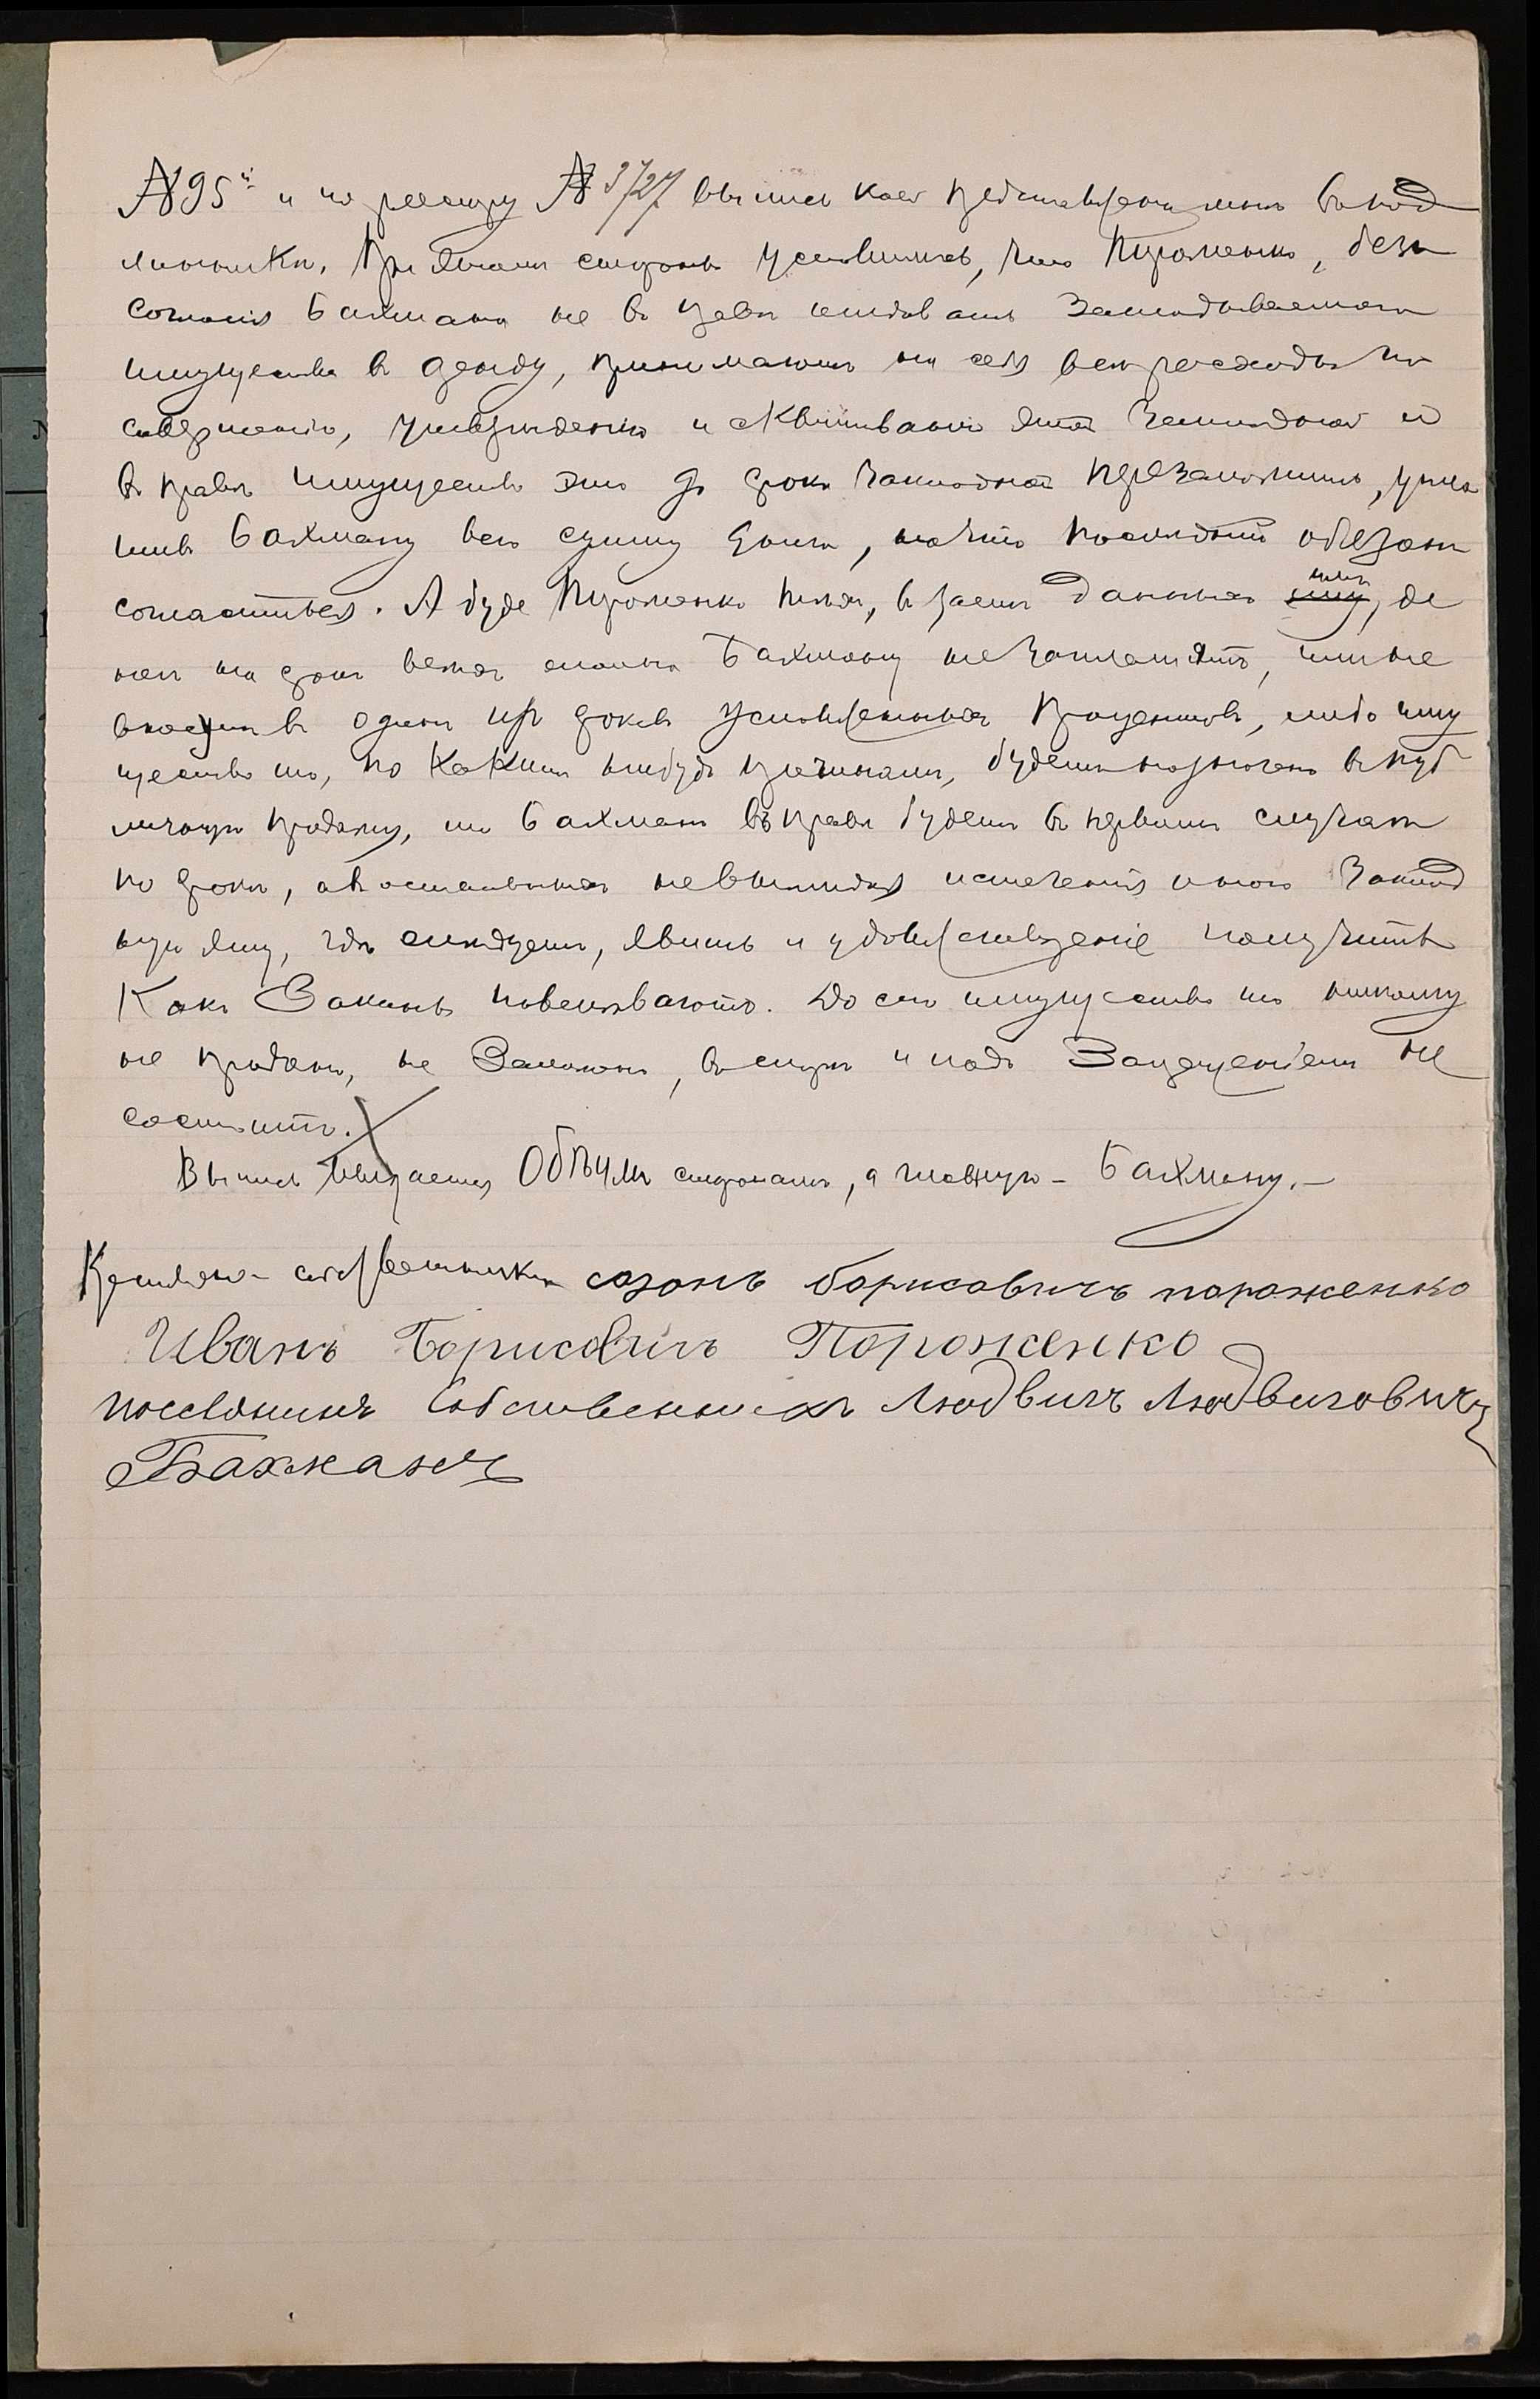 № 95й и по реестру № 3727 выпись коея представлена мнѣ въ под
линникѣ. При этомъ стороны условились, что Пороженко, безъ
согласія Бахмана не въ правѣ отдавать закладываемаго
имущества въ аренду, принимаютъ на себя всѣ расходы по
совершенію, утвержденію и сквитыванію этой закладной и
въ правѣ имущество это до срока закладной перезаложить, упла
тивъ Бахману всю сумму долга, на что послѣдній обязанъ
согласиться. А буде Пороженко тѣхъ, въ заемъ данныхъ имъ, де
негъ на срокъ всѣхъ сполна Бахману не заплатятъ, или не
внесутъ въ одинъ изъ сроковъ условленныхъ процентовъ, либо иму
щество то, по какимъ нибудь причинамъ, будетъ назначено въ пуб
личную продажу, то Бахманъ въ правѣ будетъ въ первомъ случаѣ
по срокѣ, а въ остальныхъ не выжидая истеченія онаго закладъ
ную эту, гдѣ слѣдуетъ, явить и удовлетвореніе получить
какъ законы повелѣваютъ. До сего имущество то никому
не продано, не заложено, въ спорѣ и подъ запрещеніемъ не
состоитъ.
Выпись выдается обѣимъ сторонамъ, а главную - Бахману. -
Крестьяне - собственники созонъ борисовичъ пороженко
Иванъ Борисовичъ Пороженко
поселянинъ собственникъ Людвигъ Людвиговичъ
Бахманъ